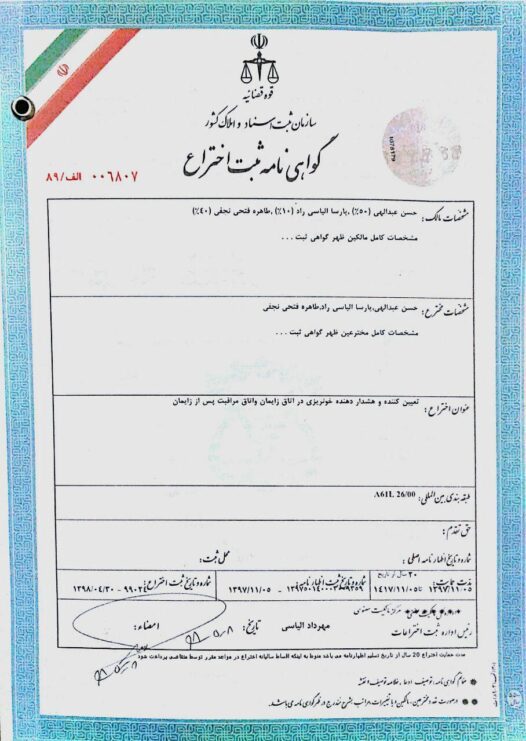 قوه قضائیه
سازمان ثبت اسناد و املاک کشور
گواهی نامه ثبت اختراع
۰۰۶۸۰۷ الف/۸۹
مشخصات مالک: حسن عبدالهی (۵۰٪) ,پارسا الیاسی راد (۱۰٪) ,طاهره فتحی نجفی (۴۰٪)
مشخصات کامل مالکین ظهر گواهی ثبت ...
مشخصات مخترع: حسن عبدالهی,پارسا الیاسی راد,طاهره فتحی نجفی
مشخصات کامل مخترعین ظهر گواهی ثبت ...
عنوان اختراع: تعیین کننده و هشدار دهنده خونریزی در اتاق زایمان واتاق مراقبت پس از زایمان
طبقه بندی بین المللی: A61L 26/00
حق تقدم:
شماره و تاریخ اظهارنامه اصلی: محل ثبت:
مدت حمایت: ۲۰ سال از تاریخ
۱۳۹۷/۱۱/۰۵ تا ۱۴۱۷/۱۱/۰۵
شماره و تاریخ ثبت اظهارنامه:
۱۳۹۷/۱۱/۰۵
شماره و تاریخ ثبت اختراع:
۱۳۹۸/۰۴/۳۰
مرکز مالکیت معنوی
رئیس اداره ثبت اختراعات مهرداد الیاسی تاریخ: امضاء:
مدت حمایت اختراع 20 سال از تاریخ تسلیم اظهارنامه می باشد منوط به اینکه اقساط سالیانه اختراع در مواعد مقرر توسط متقاضی پرداخت شود